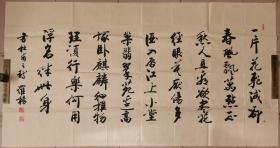 一片花飛減却
春風飄萬點正
愁人且看欲盡花
經眼莫厭傷多
酒入唇江上小堂
巢翡翠苑邊高
塚臥麒麟細推物
理須行樂何用
浮名絆此身
書杜甫詩 羅楊